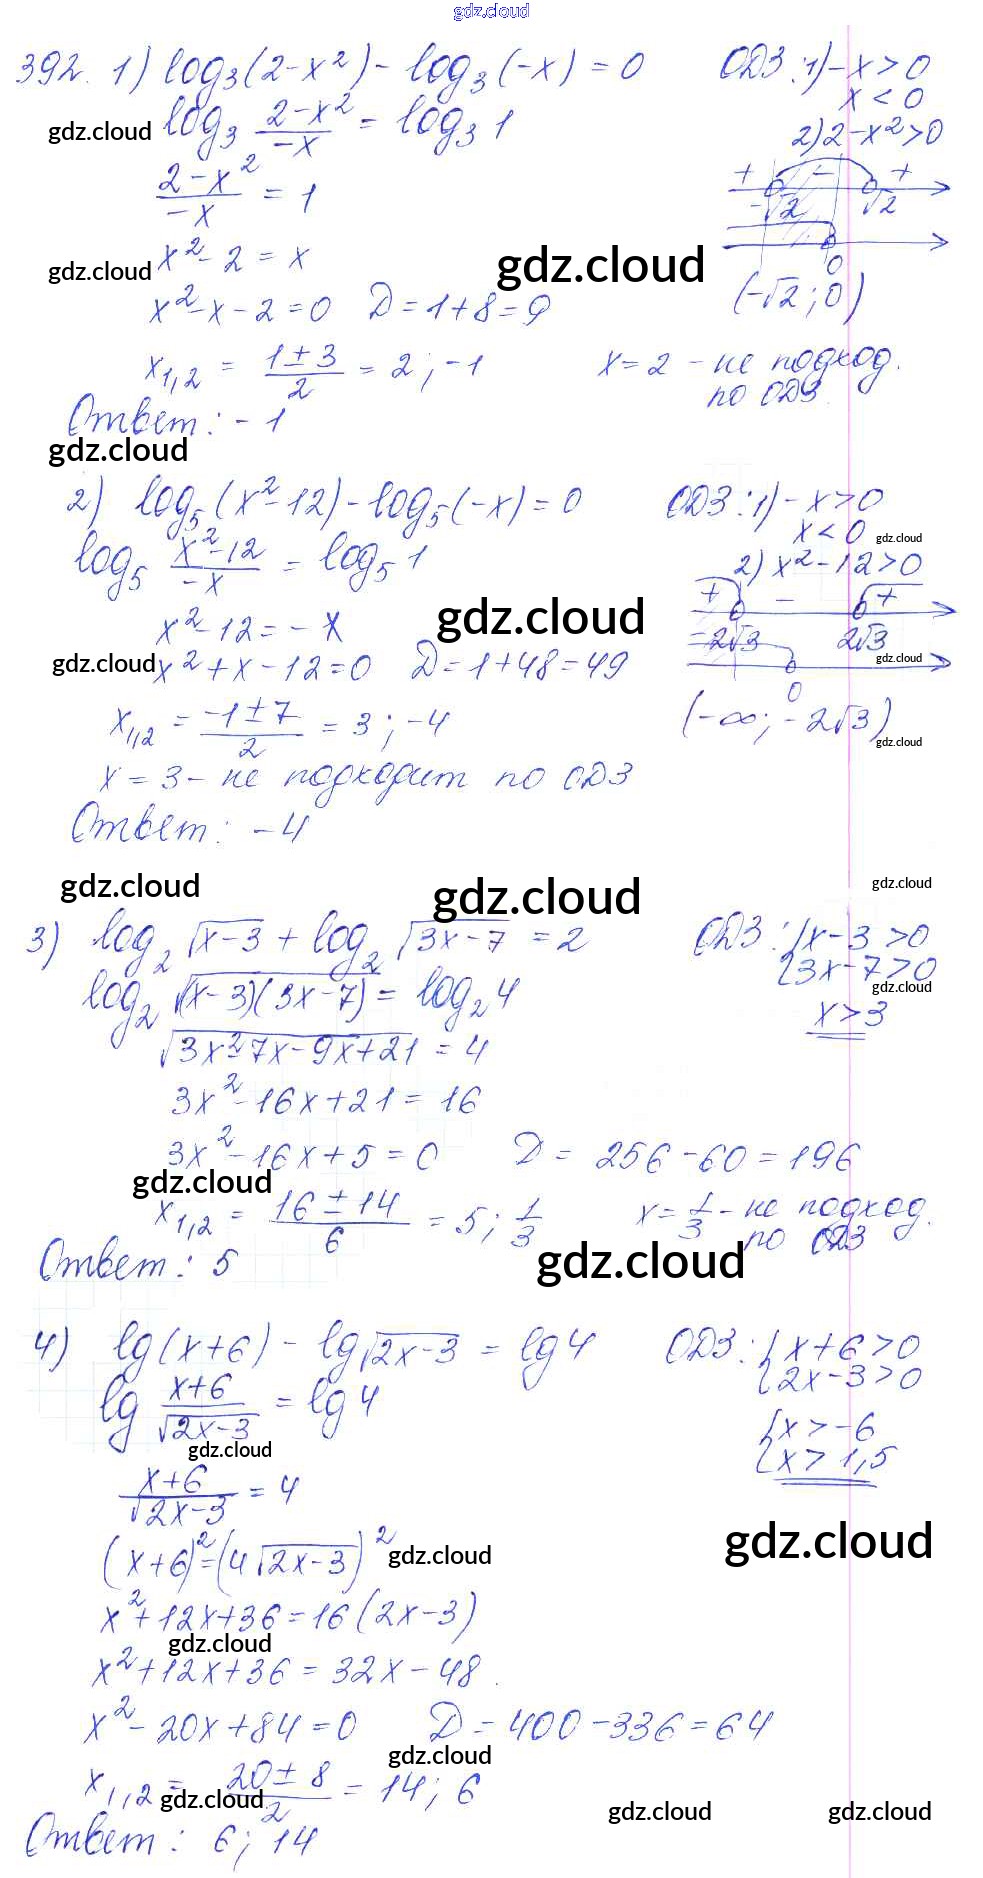 gdz.cloud
392. 1) log₃(2-x²) - log₃(-x) = 0 ОДЗ: 1) -x > 0
x < 0
gdz.cloud log₃ (2-x²)/(-x) = log₃ 1 2) 2-x² > 0
(2-x²)/(-x) = 1 + - +
-√2 √2
gdz.cloud x² - 2 = x gdz.cloud 0
x² - x - 2 = 0 D = 1+8 = 9 (-√2; 0)
x₁,₂ = (1±3)/2 = 2; -1 x = 2 - не подход.
по ОДЗ.
Ответ: -1
gdz.cloud
2) log₅(x²-12) - log₅(-x) = 0 ОДЗ: 1) -x > 0
x < 0 gdz.cloud
log₅ (x²-12)/(-x) = log₅ 1 2) x²-12 > 0
+ - +
x²-12 = -x gdz.cloud -2√3 2√3
gdz.cloud x² + x - 12 = 0 D = 1+48 = 49 gdz.cloud
0
x₁,₂ = (-1±7)/2 = 3; -4 (-∞; -2√3)
gdz.cloud
x = 3 - не подходит по ОДЗ
Ответ: -4
gdz.cloud gdz.cloud gdz.cloud
3) log₂ √(x-3) + log₂ √(3x-7) = 2 ОДЗ: { x-3 > 0
{ 3x-7 > 0
gdz.cloud
log₂ √((x-3)(3x-7)) = log₂ 4 x > 3
√(3x²-7x-9x+21) = 4
3x² - 16x + 21 = 16
3x² - 16x + 5 = 0 D = 256 - 60 = 196
gdz.cloud
x₁,₂ = (16±14)/6 = 5; 1/3 x = 1/3 - не подход.
по ОДЗ
Ответ: 5 gdz.cloud
4) lg(x+6) - lg√(2x-3) = lg 4 ОДЗ: { x+6 > 0
{ 2x-3 > 0
lg (x+6)/√(2x-3) = lg 4 { x > -6
gdz.cloud { x > 1,5
(x+6)/√(2x-3) = 4
gdz.cloud
(x+6)² = (4√(2x-3))² gdz.cloud
x² + 12x + 36 = 16(2x-3)
gdz.cloud
x² + 12x + 36 = 32x - 48.
x² - 20x + 84 = 0 D = 400 - 336 = 64
gdz.cloud
x₁,₂ = (20±8)/2 = 14; 6
gdz.cloud gdz.cloud gdz.cloud
Ответ: 6; 14